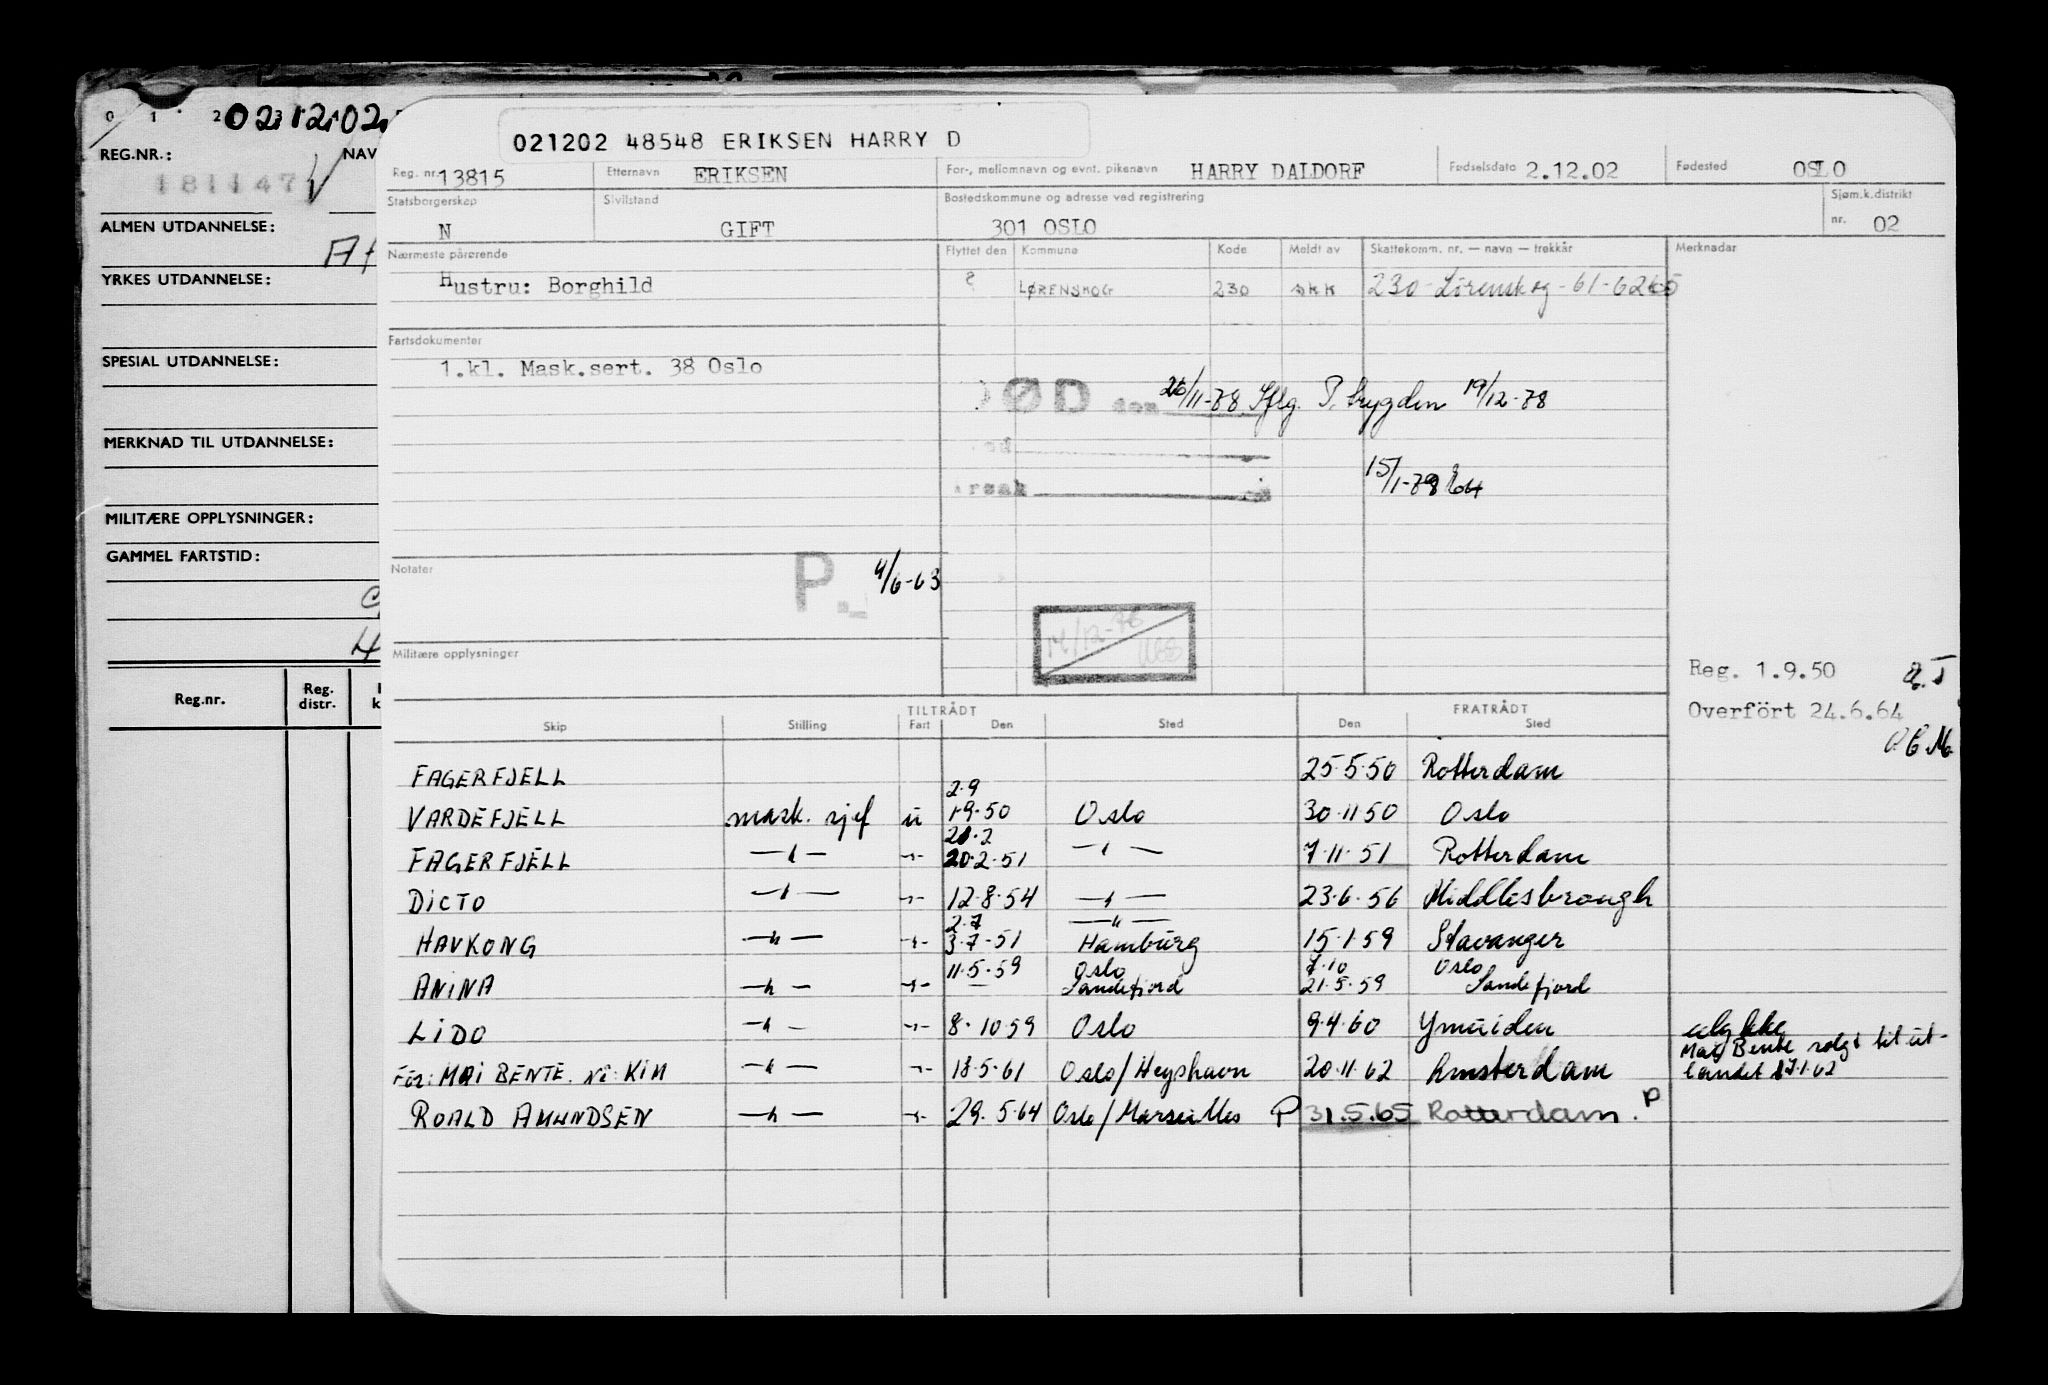 0 1 2 021202
REG.NR.: NAV
181147
ALMEN UTDANNELSE:
YRKES UTDANNELSE:
SPESIAL UTDANNELSE:
MERKNAD TIL UTDANNELSE:
MILITÆRE OPPLYSNINGER:
GAMMEL FARTSTID:
Reg.nr. Reg. distr.
021202 48548 ERIKSEN HARRY D
Reg. nr. 13815 Etternavn ERIKSEN For-, mellomnavn og evnt. pikenavn HARRY DALDORF Fødselsdato 2.12.02 Fødested OSLO
Statsborgerskap Sivilstand Bostedskommune og adresse ved registrering Sjøm.k.distrikt
N GIFT 301 OSLO nr. 02
Nærmeste pårørende Flyttet den Kommune Kode Meldt av Skattekomm. nr. — navn — trekkår Merknader
Hustru: Borghild ? LØRENSKOG 230 skk 230 - Lørenskog - 61-62
Fartsdokumenter
1.kl. Mask.sert. 38 Oslo
ØD den 26/11-78 Iflg. P. trygden 19/12-78
15/1-79
Notater P. 4/6-63
14/12-78
Militære opplysninger
Reg. 1.9.50
Overfört 24.6.64
TILTRÅDT FRATRÅDT
Skip Stilling Fart Den Sted Den Sted
FAGERFJELL 25.5.50 Rotterdam
2.9
VARDEFJELL mask. sjef u 1.9.50 Oslo 30.11.50 Oslo
21.2
FAGERFJELL —"— -"- 20.2.51 —"— 7.11.51 Rotterdam
DICTO —"— -"- 12.8.54 —"— 23.6.56 Middlesbrough
2.7 —"—
HAVKONG —"— -"- 3.7-51 Hamburg 15.1.59 Stavanger
11.5.59 Oslo 7.10 Oslo
ANINA —"— -"- — Sandefjord 21.5.59 Sandefjord
LIDO —"— -"- 8.10.59 Oslo 9.4.60 Ymuiden ulykke
Mai Bente solgt til ut-
Før: MAI BENTE. Nå: KIM —"— -"- 18.5.61 Oslo/Heyshavn 20.11.62 Amsterdam landet 17.1.62
ROALD AMUNDSEN —"— -"- 29.5.64 Oslo/Marseilles P 31.5.65 Rotterdam. P